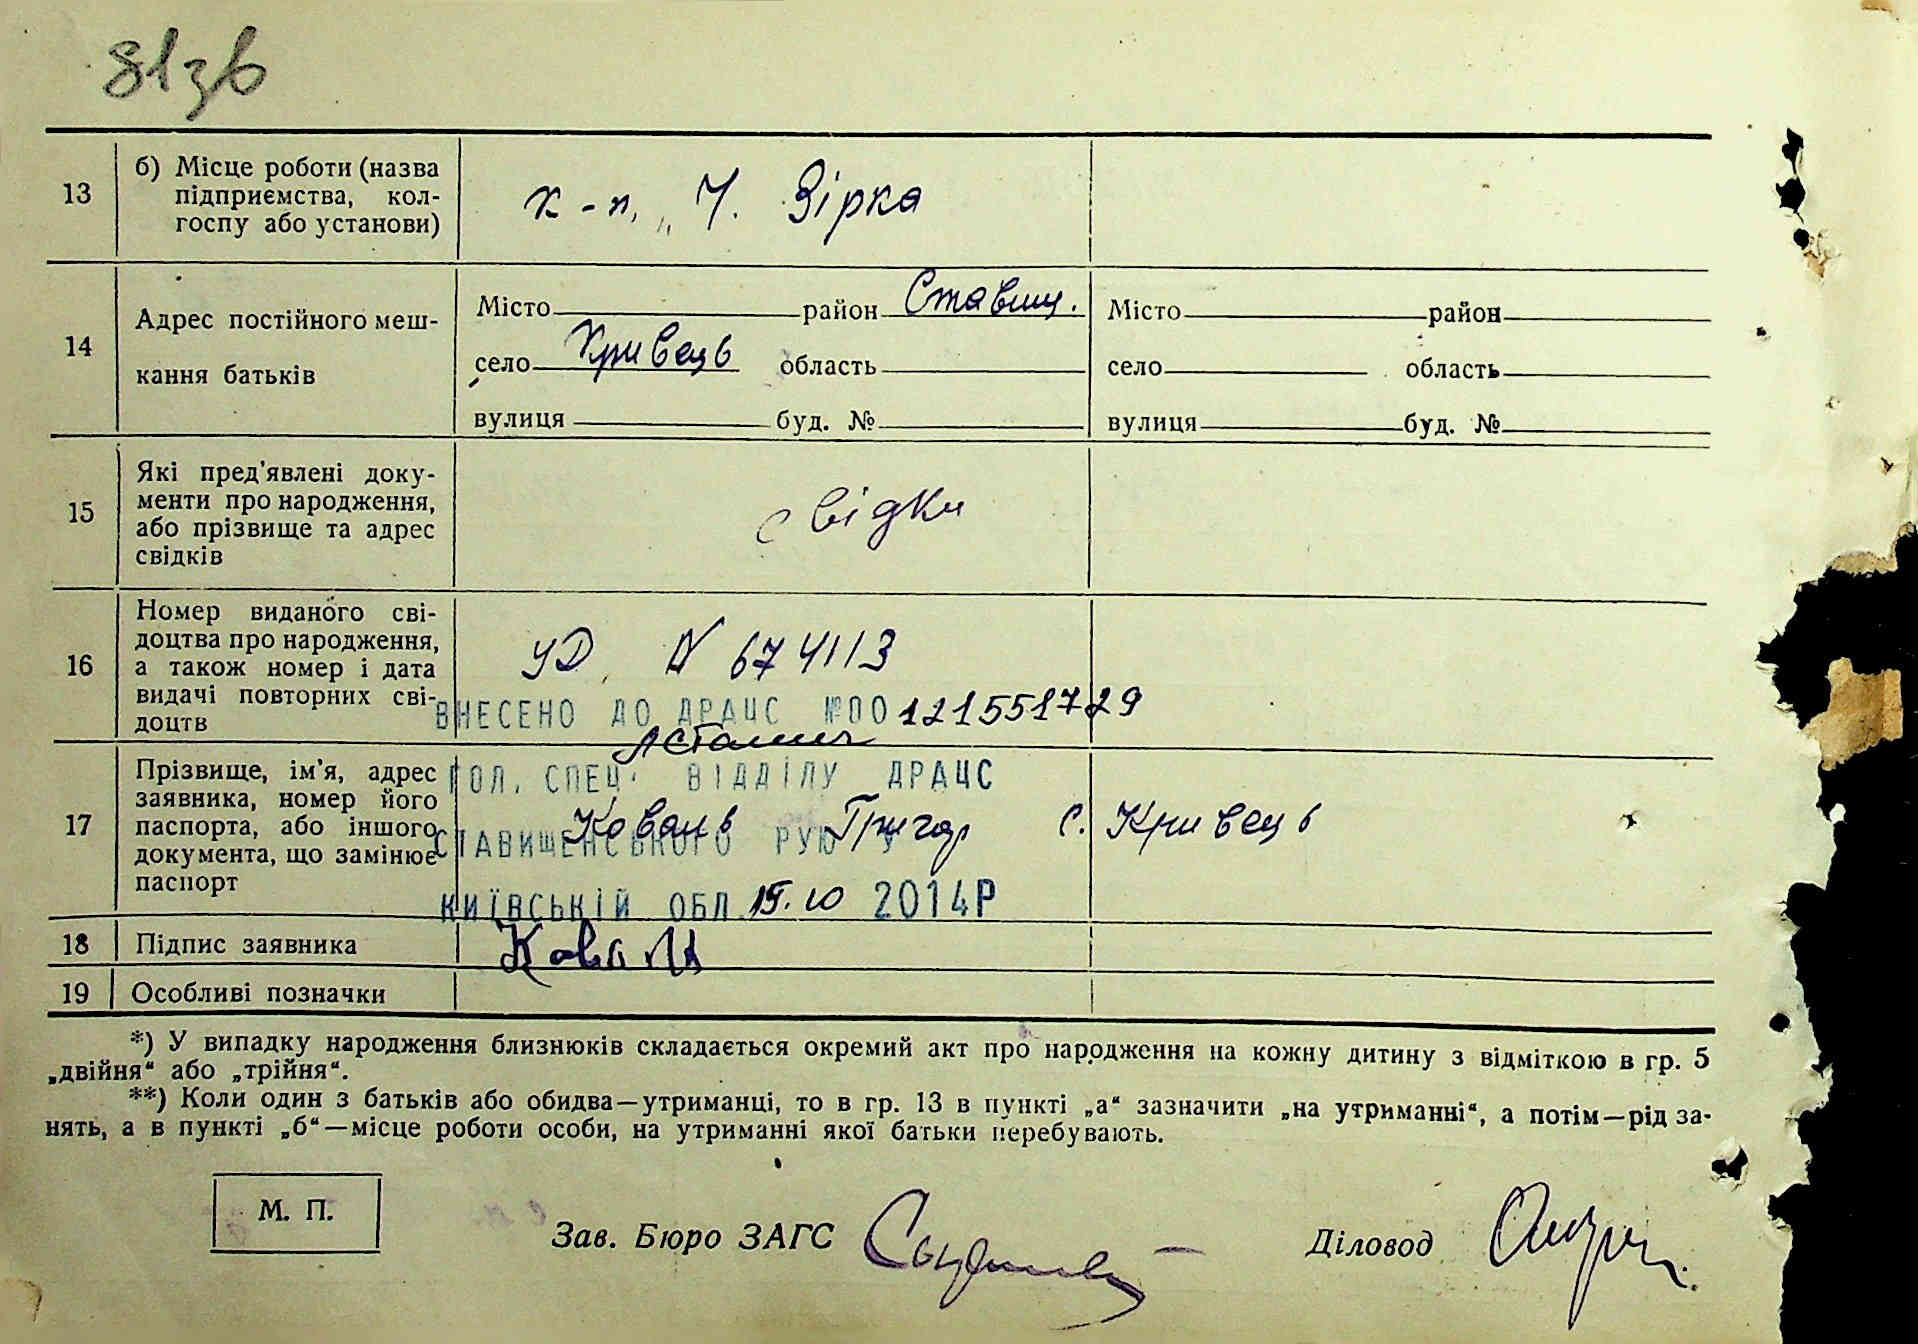 81зв
13
б) Місце роботи (назва
підприємства, кол-
госпу або установи)
к-п, „Ч. Зірка
14
Адрес постійного меш-
кання батьків
Місто район Ставищ.
село Кривець область
вулиця буд. №
Місто район
село область
вулиця буд. №
15
Які пред’явлені доку-
менти про народження,
або прізвище та адрес
свідків
свідки
16
Номер виданого сві-
доцтва про народження,
а також номер і дата
видачі повторних сві-
доцтв
УД N 674113
ВНЕСЕНО ДО ДРАЦС №00121551729
17
Прізвище, ім’я, адрес
заявника, номер його
паспорта, або іншого
документа, що замінює
паспорт
ГОЛ. СПЕЦ. ВІДДІЛУ ДРАЦС
Коваль Григор с. Кривець
СТАВИЩЕНСЬКОГО РУЮ У
КИЇВСЬКІЙ ОБЛ 15.10 2014Р
18
Підпис заявника
19
Особливі позначки
*) У випадку народження близнюків складається окремий акт про народження на кожну дитину з відміткою в гр. 5
„двійня“ або „трійня“.
**) Коли один з батьків або обидва—утриманці, то в гр. 13 в пункті „а“ зазначити „на утриманні“, а потім—рід за-
нять, а в пункті „б“—місце роботи особи, на утриманні якої батьки перебувають.
М. П.
Зав. Бюро ЗАГС
Діловод